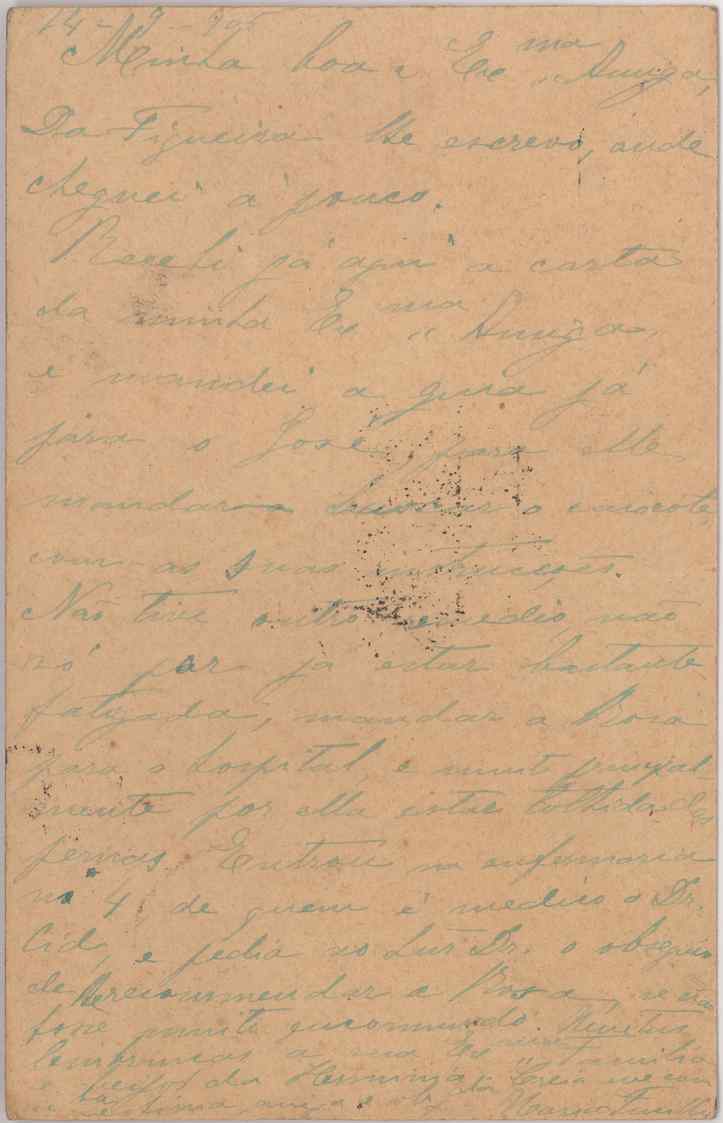 14-9-905
Minha boa e Exma Amiga,
Da Figueira lhe escrevo, aonde
cheguei á pouco.
Recebi já aqui a carta
da minha Exma Amiga,
e mandei a guia já
para o José, para elle
mandar buscar o caixote
com as suas instrucções.
Não tive outro remedio, não
só por já estar bastante
fatigada, mandar a Rosa
para o hospital, e muito principal-
mente por ella estar tolhida das
pernas. Entrou na enfermaria
nº 4 de quem é medico o Dr.
Cid, e pedia ao Snr Dr. o obsequio
de recommendar a Rosa, se não
fosse muito encommodo. Muitas
lembranças a sua Exma Familia
e beijos da Herminia. Creia me com
estima, amiga e obrda Maria